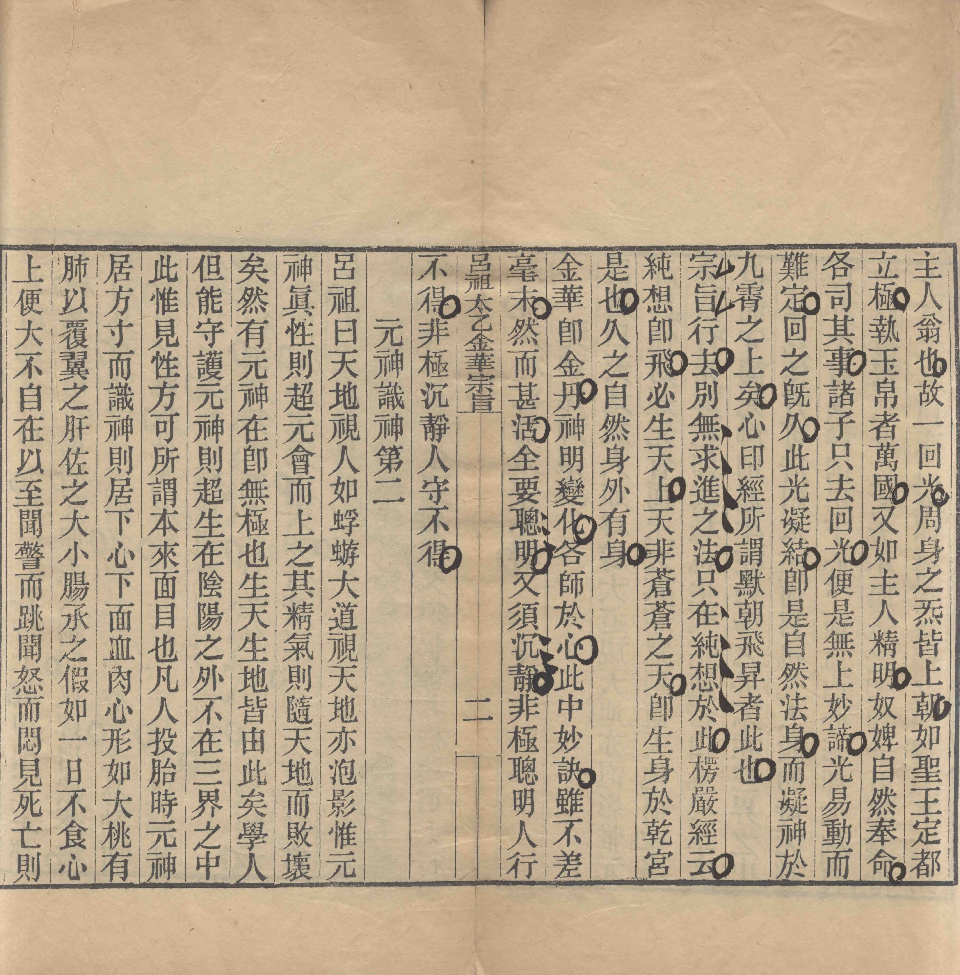 主人翁也故一回光周身之炁皆上朝如聖王定都
立極執玉帛者萬國又如主人精明奴婢自然奉命
各司其事諸子只去回光便是無上妙諦光易動而
難定回之旣久此光凝結卽是自然法身而凝神於
九霄之上矣心印經所謂默朝飛昇者此也
宗旨行去別無求進之法只在純想於此楞嚴經云
純想卽飛必生天上天非蒼蒼之天卽生身於乾宮
是也久之自然身外有身
金華卽金丹神明變化各師於心此中妙訣雖不差
毫末然而甚活全要聰明又須沉靜非極聰明人行
呂祖太乙金華宗旨 二
不得非極沉靜人守不得
元神識神第二
呂祖曰天地視人如蜉蝣大道視天地亦泡影惟元
神眞性則超元會而上之其精氣則隨天地而敗壞
矣然有元神在卽無極也生天生地皆由此矣學人
但能守護元神則超生在陰陽之外不在三界之中
此惟見性方可所謂本來面目也凡人投胎時元神
居方寸而識神則居下心下面血肉心形如大桃有
肺以覆翼之肝佐之大小腸承之假如一日不食心
上便大不自在以至聞驚而跳聞怒而悶見死亡則